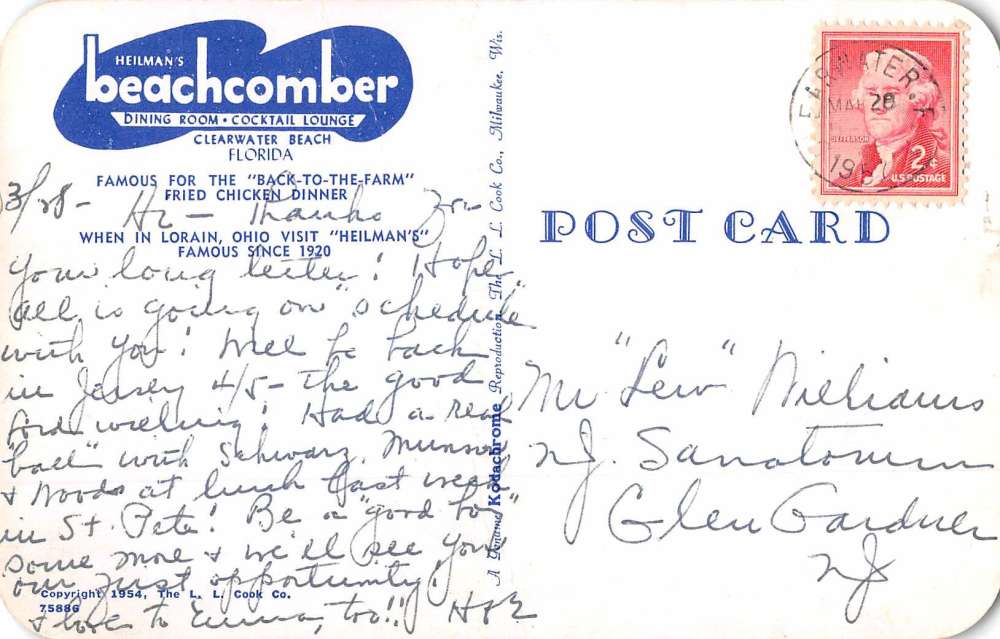 HEILMAN'S
beachcomber
DINING ROOM • COCKTAIL LOUNGE
CLEARWATER BEACH
FLORIDA
FAMOUS FOR THE "BACK-TO-THE-FARM"
FRIED CHICKEN DINNER
3/28- Hi - Thanks for
WHEN IN LORAIN, OHIO VISIT "HEILMAN'S"
FAMOUS SINCE 1920
your long letter! Hope
all is going on "schedule"
with you! Will be back
in Jersey 4/5 - the good
Lord willing! Had a real
"ball" with Schwarz, Munson
& Woods at lunch last week
in St. Pete! Be a "good boy"
some more & we'll see you
our just opportunity!
Copyright 1954, The L. L. Cook Co.
75886
& love to Emma, too!!
A Genuine Kodachrome Reproduction The L. L. Cook Co., Milwaukee, Wis.
JEFFERSON
2¢
U.S. POSTAGE
MAR 28
POST CARD
Mr "Lew" Williams
NJ. Sanatorium
Glen Gardner
NJ